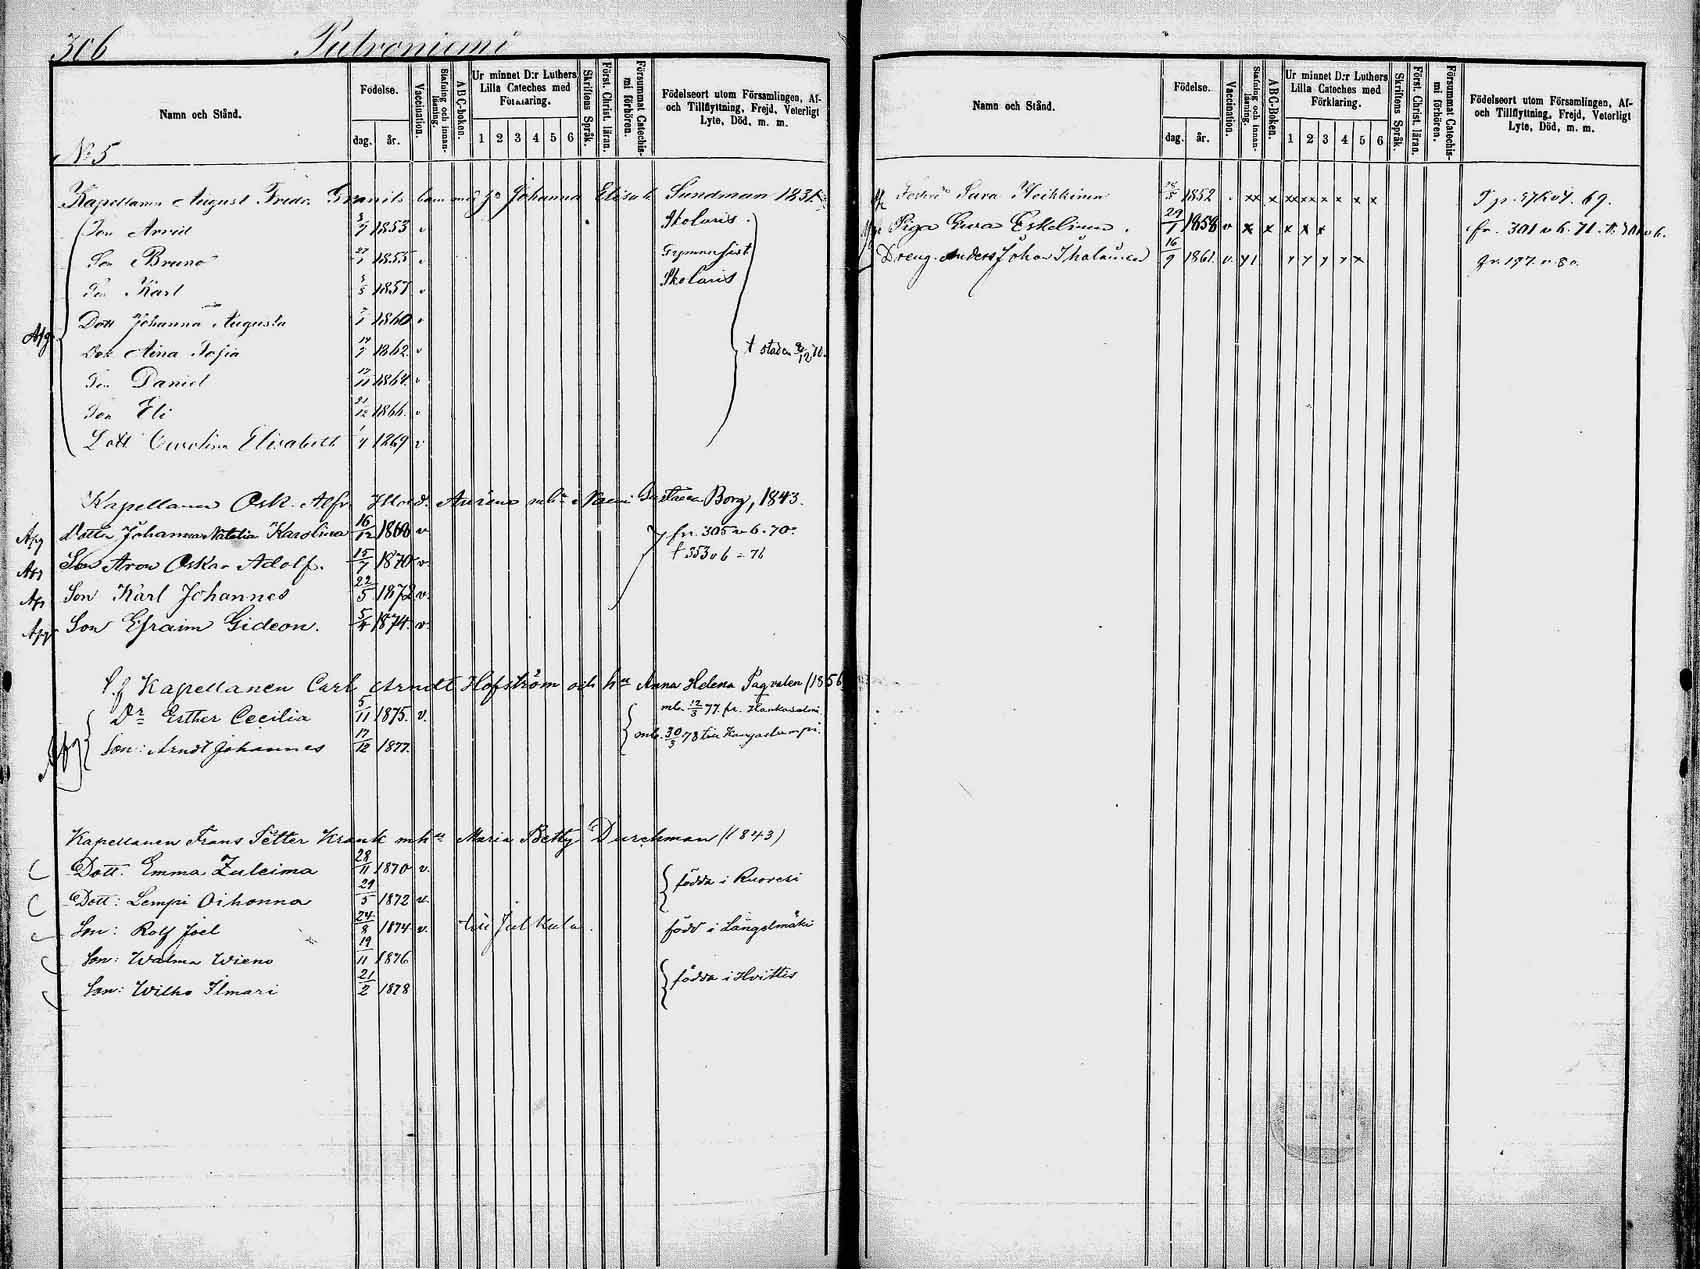 306 Putroniemi
Namn och Stånd.
Födelse.
dag. år.
Vaccination.
Stafning och innanläsning.
ABC-Boken.
Ur minnet D:r Luthers Lilla Cateches med Förklaring.
1 2 3 4 5 6
Skriftens Språk.
Först. Christ. läran.
Försummat Catechismi förhören.
Födelseort utom Församlingen, Af- och Tillflyttning, Frejd, Veterligt Lyte, Död, m. m.
No 5
Kapellanen August Fredr. Granit Johanna Elisab. Sundman 1831
Son Arvid 1853 v Skolaris
Son Bruno 27/1 1855 v Gymnasist
Son Karl 1857 v Skolaris
Dott Johanna Augusta 1860 v
Dott Aina Sofia 1862 v
Son Daniel 1864 v
Son Eli 21/12 1866 v
Dott Carolina Elisabeth 1/4 1869 v
Kapellanen Osk. Alfr. Borg, 1843.
Afg dotter Johanna Natalia Karolina 16/12 1868 v fr. 305 v 6. 70.
Son Aron Oskar Adolf. 15/7 1870 v. † 353 v 6 = 76
Son Karl Johannes 22/5 1872 v.
Afg Son Efraim Gideon. 5/4 1874. v.
t.f Kapellanen Carl Arndt Hofström och h:u Anna Helena Pagvalen (1856
D:r Esther Cecilia 5/11 1875. v. mb. 12/3 77. fr. Hankasalmi
Afg Son: Arndt Johannes 17/12 1877. mb. 30/3 78 till Kangaslampi.
Kapellanen Frans Petter Krank m h:u Maria Betty Durchman (1843)
Dott: Emma Zuleima 28/11 1870 v. födda i Ruovesi
Dott: Lempi Oihonna 29/5 1872 v.
Son: Rolf Joel 24/8 1874 v. född i Längelmäki
Son: Walma Wieno 19/11 1876 födda i Hvittis
Son: Wilho Ilmari 21/2 1878
Namn och Stånd.
Födelse.
dag. år.
Vaccination.
Stafning och innanläsning.
ABC-Boken.
Ur minnet D:r Luthers Lilla Cateches med Förklaring.
1 2 3 4 5 6
Skriftens Språk.
Först. Christ. läran.
Försummat Catechismi förhören.
Födelseort utom Församlingen, Af- och Tillflyttning, Frejd, Veterligt Lyte, Död, m. m.
Sara Heikkinen 1852 xx x xx x x x x x 69.
Piga Eva Eskelinen 29/1 1858 v x x x x x fr. 301 v 6. 71.
Dreng. Anders Johan Ihalainen 16/9 1861. v.